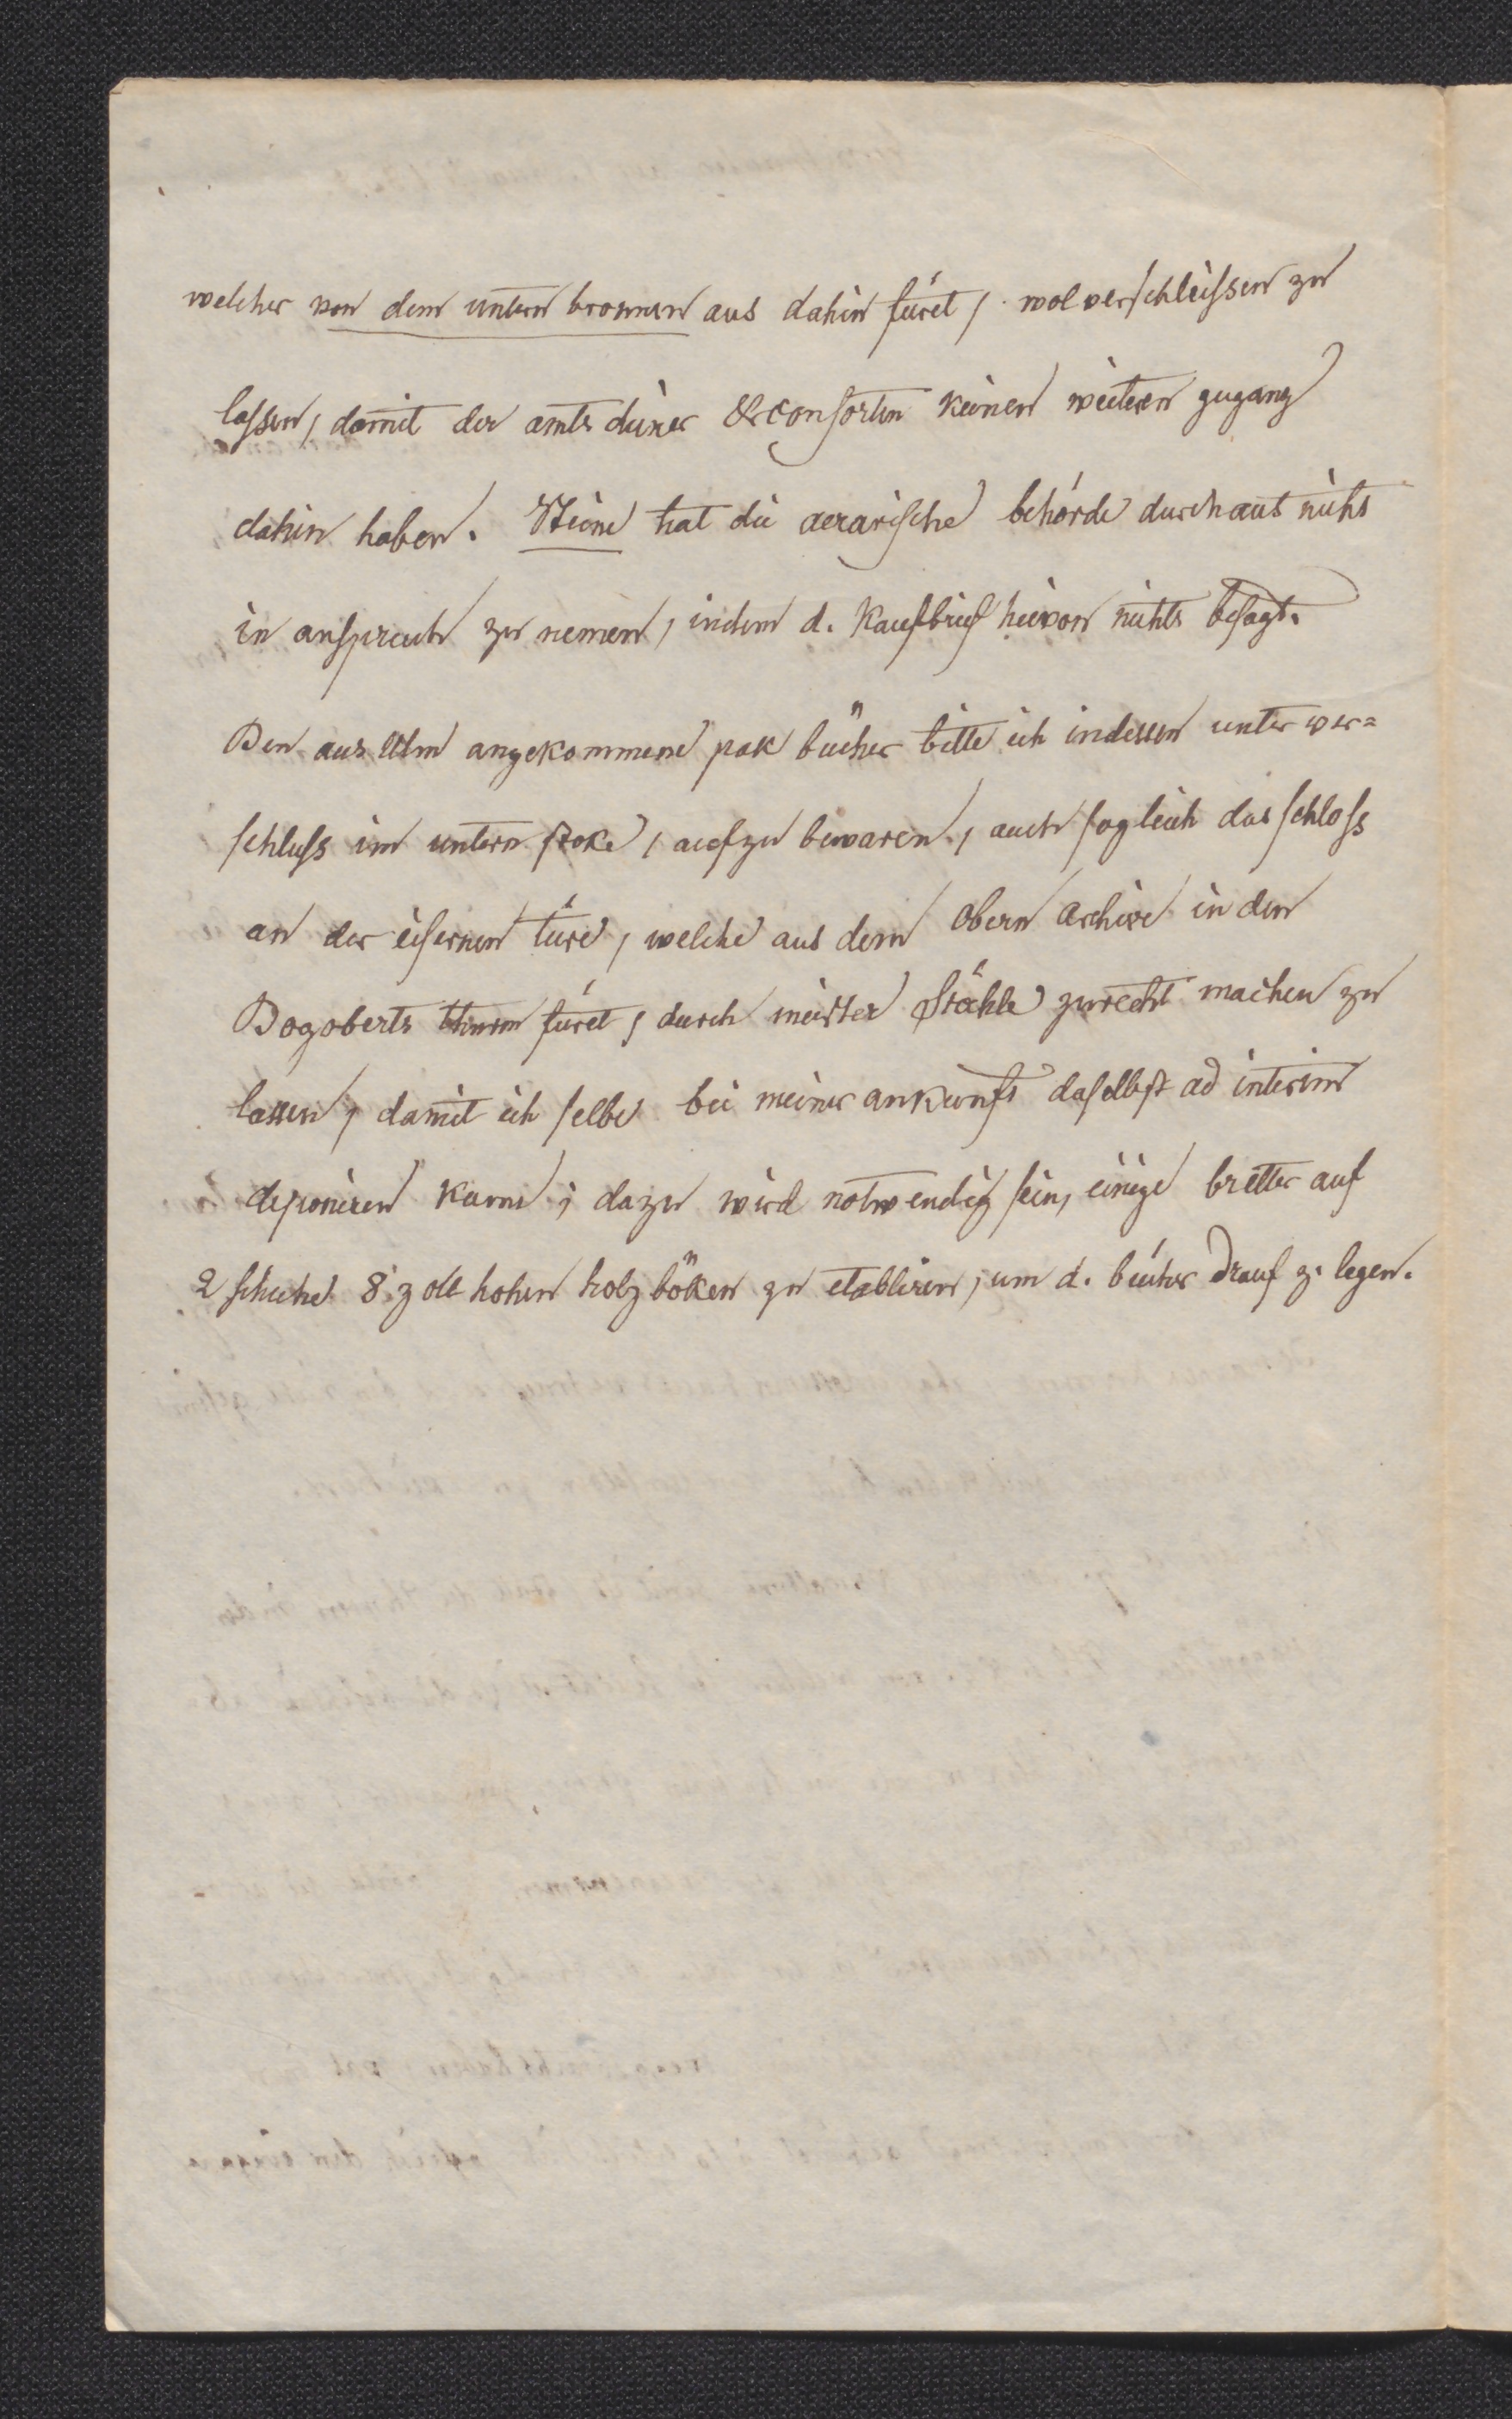 welcher von dem untern bronnen aus dahin füret, wol verschleissen zu
lassen, damit der amts diener & consorten keinen weitern zugang
dahin haben. Steine hat die aerarische behörde durchaus nichts
in anspruch zu nemen, indem d. Kaufbrief hievon nichts besagt.
Den aus Ulm angekommene pak bücher bitte ich indessen unter ver=
schluss im untern stoke, aufzu bewaren, auch sogleich das schloss
an der eisernen türe, welche aus dem obern archive in den
Dagoberts thurm füret, durch meister Stähle zurecht machen zu
lassen, damit ich selbe bei meiner ankunft daselbst ad interim
deponiren kann; dazu wird notwendig sein, einige bretter auf
2 schuhe 8 zoll hohen holz böken zu etabliren, um d. bücher drauf z. legen.